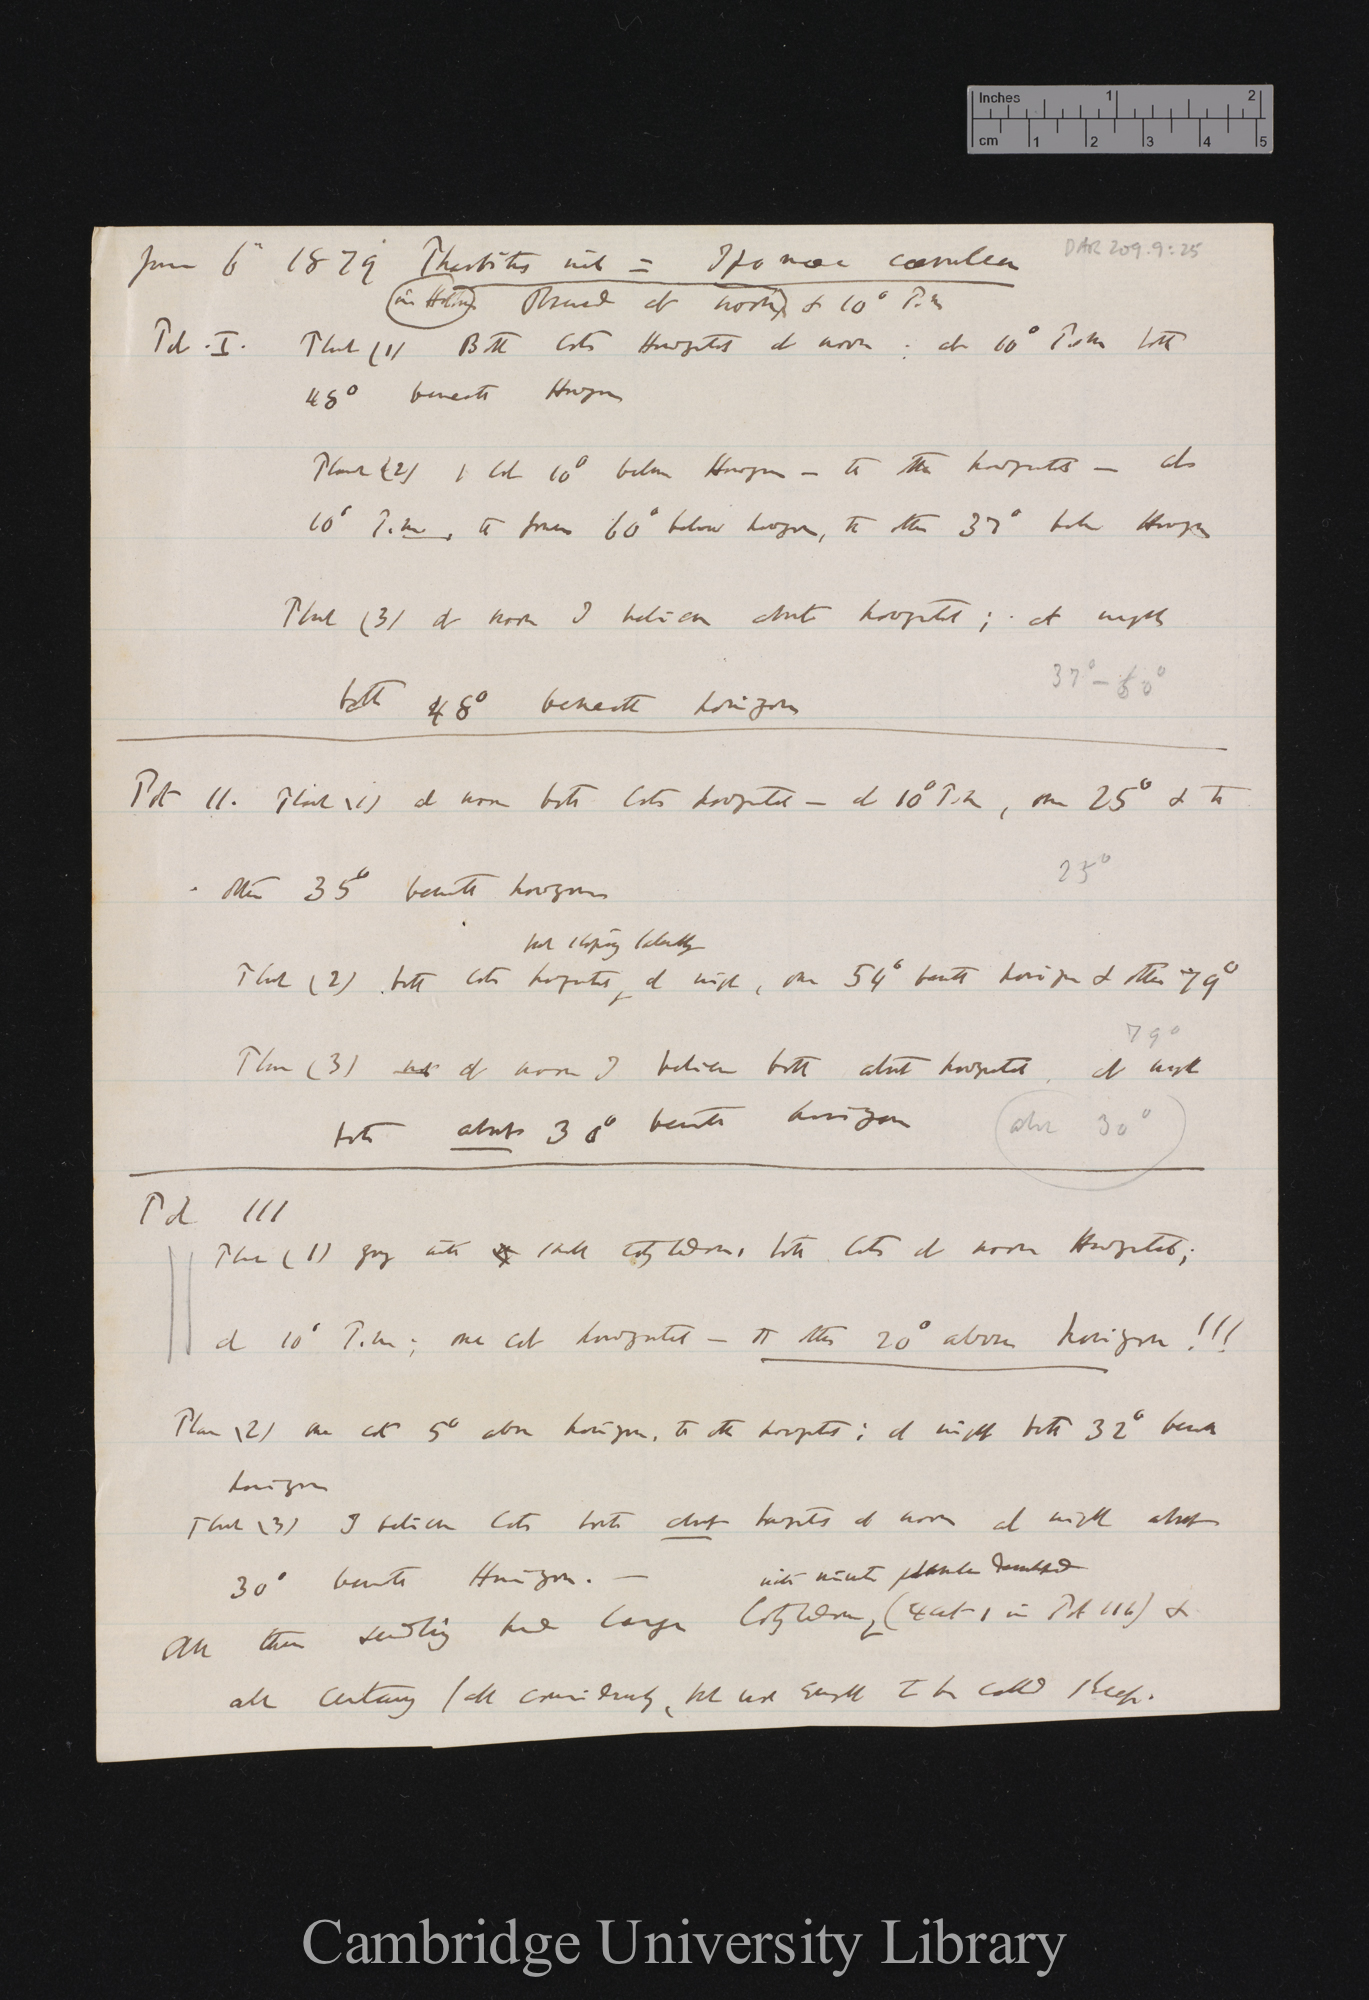 Inches 1 2
cm 1 2 3 4 5
DAR 209.9:25
June 6th 1879 Pharbitis nil = Ipomœa cœrulea
(in Hothouse) Observed at noon & 10° P.m
Pot. I. Plant (1) Both Cots Horizontal at noon: at 10° P.m both
48° beneath Horizon
Plant (2) 1 Cot 10° below Horizon — the other horizontal — at
10° P.m., the former 60° below horizon, the other 37° below Horizon
Plant (3) at noon I believe about horizontal; at night
37°–60°
both 48° beneath horizon
Pot II. Plant (1) at noon both Cots horizontal — at 10° P.m, one 25° & the
25°
other 35° beneath horizon
but sloping laterally
Plant (2) both Cots horizontal, at night, one 54° beneath horizon & other 79°
79°
Plant (3) at noon I believe both about horizontal, at night
both about 30° beneath horizon
abt 30°
Pot III
Plant (1) young with small cotyledons, both Cots at noon Horizontal;
at 10° P.m; one cot horizontal — the other 20° above horizon!!!
Plant (2) one cot 5° above horizon, the other horizontal; at night both 32° beneath
horizon
Plant (3) I believe Cots both about horizontal at noon at night about
30° beneath Horizon. —
with minute plumules developed
All these seedlings had large Cotyledons, (except 1 in Pot III) &
all certainly fall considerably, but not enough to be called sleep.
Cambridge University Library